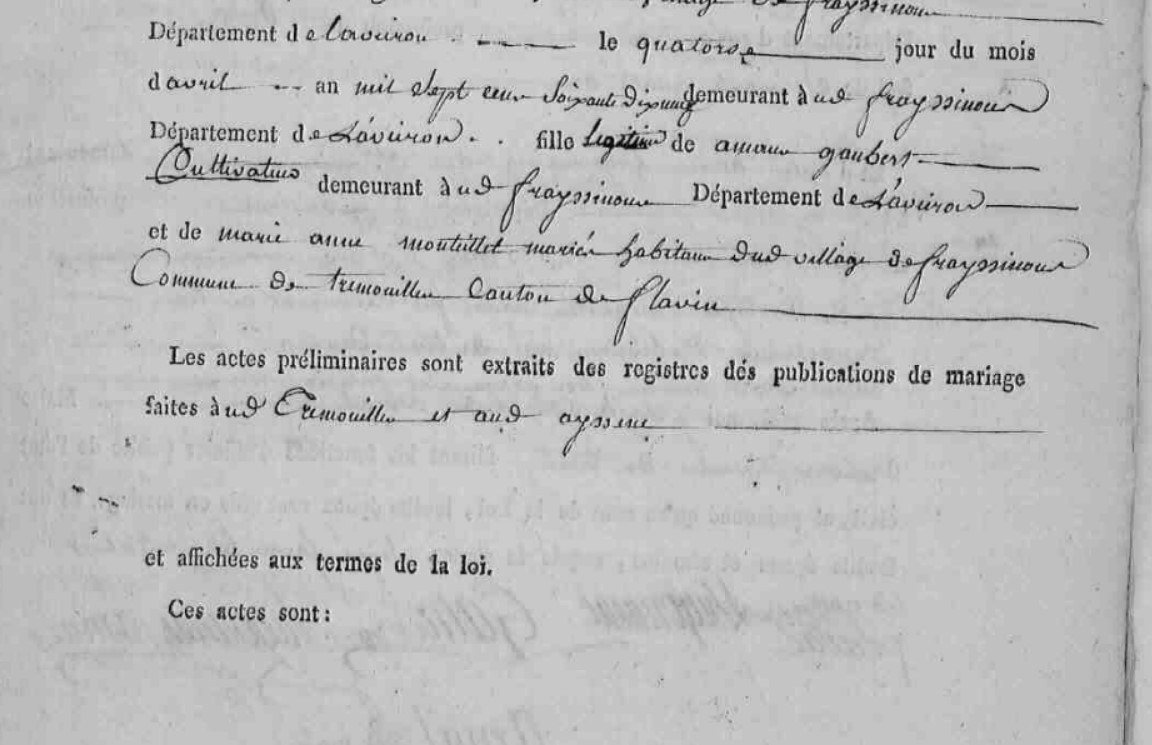 frayssinous
Département de Laveiron le quatorse jour du mois
d'avril an mil sept cens Soixante Dixneuf demeurant à ud frayssinous
Département de L'aveiron. fille Legitime de amans gaubert
Cultivateurs demeurant à ud frayssinous Département de L'aveiron
et de marie anne monteillet mariés habitans Dud village de frayssinous
Commune de tremouilles Canton de flavin
Les actes préliminaires sont extraits des registres des publications de mariage
faites à ud Tremouilles et aud ayssene
et affichées aux termes de la loi.
Ces actes sont :